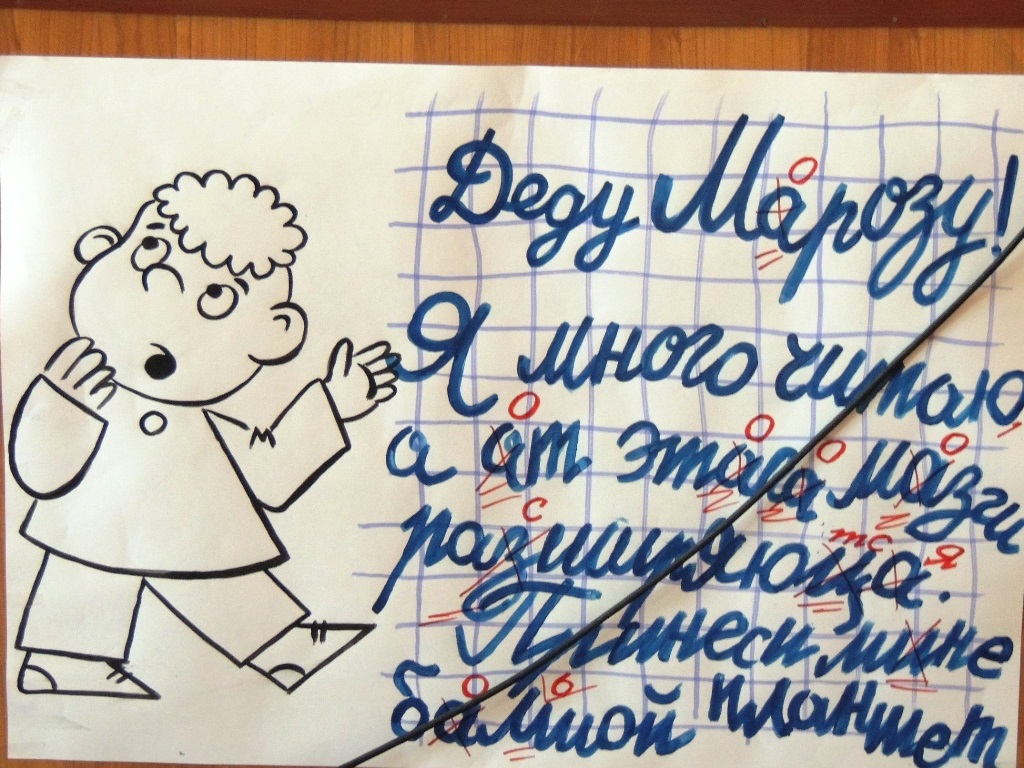 о
Деду Марозу!
Я много читаю,
о о о о
а ат этага мазги
с тс я
разширяюца.
Принеси мине
о ь
балшой планшет